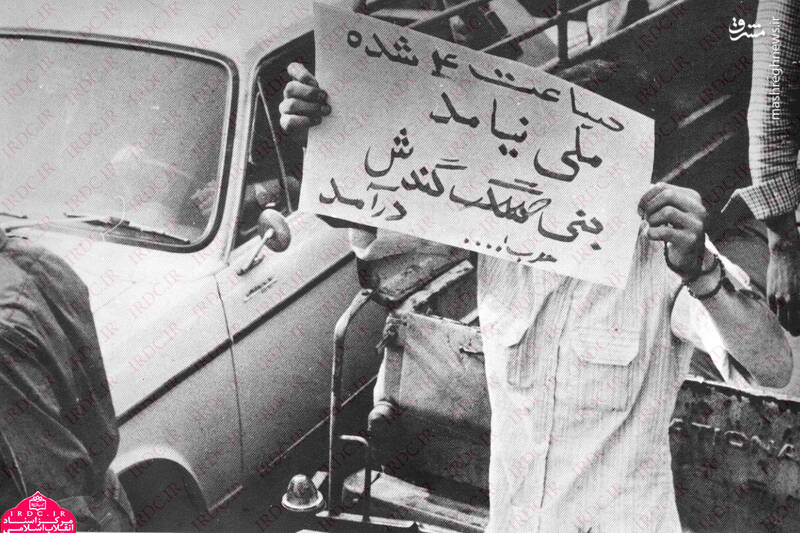 صاعت ۴ شده
ملی نیامد
بنی گندش
درآمد
TIONA
مشرق
mashreghnews.ir
IRDC.IR
مرکز اسناد
انقلاب اسلامی
IRDC.IR